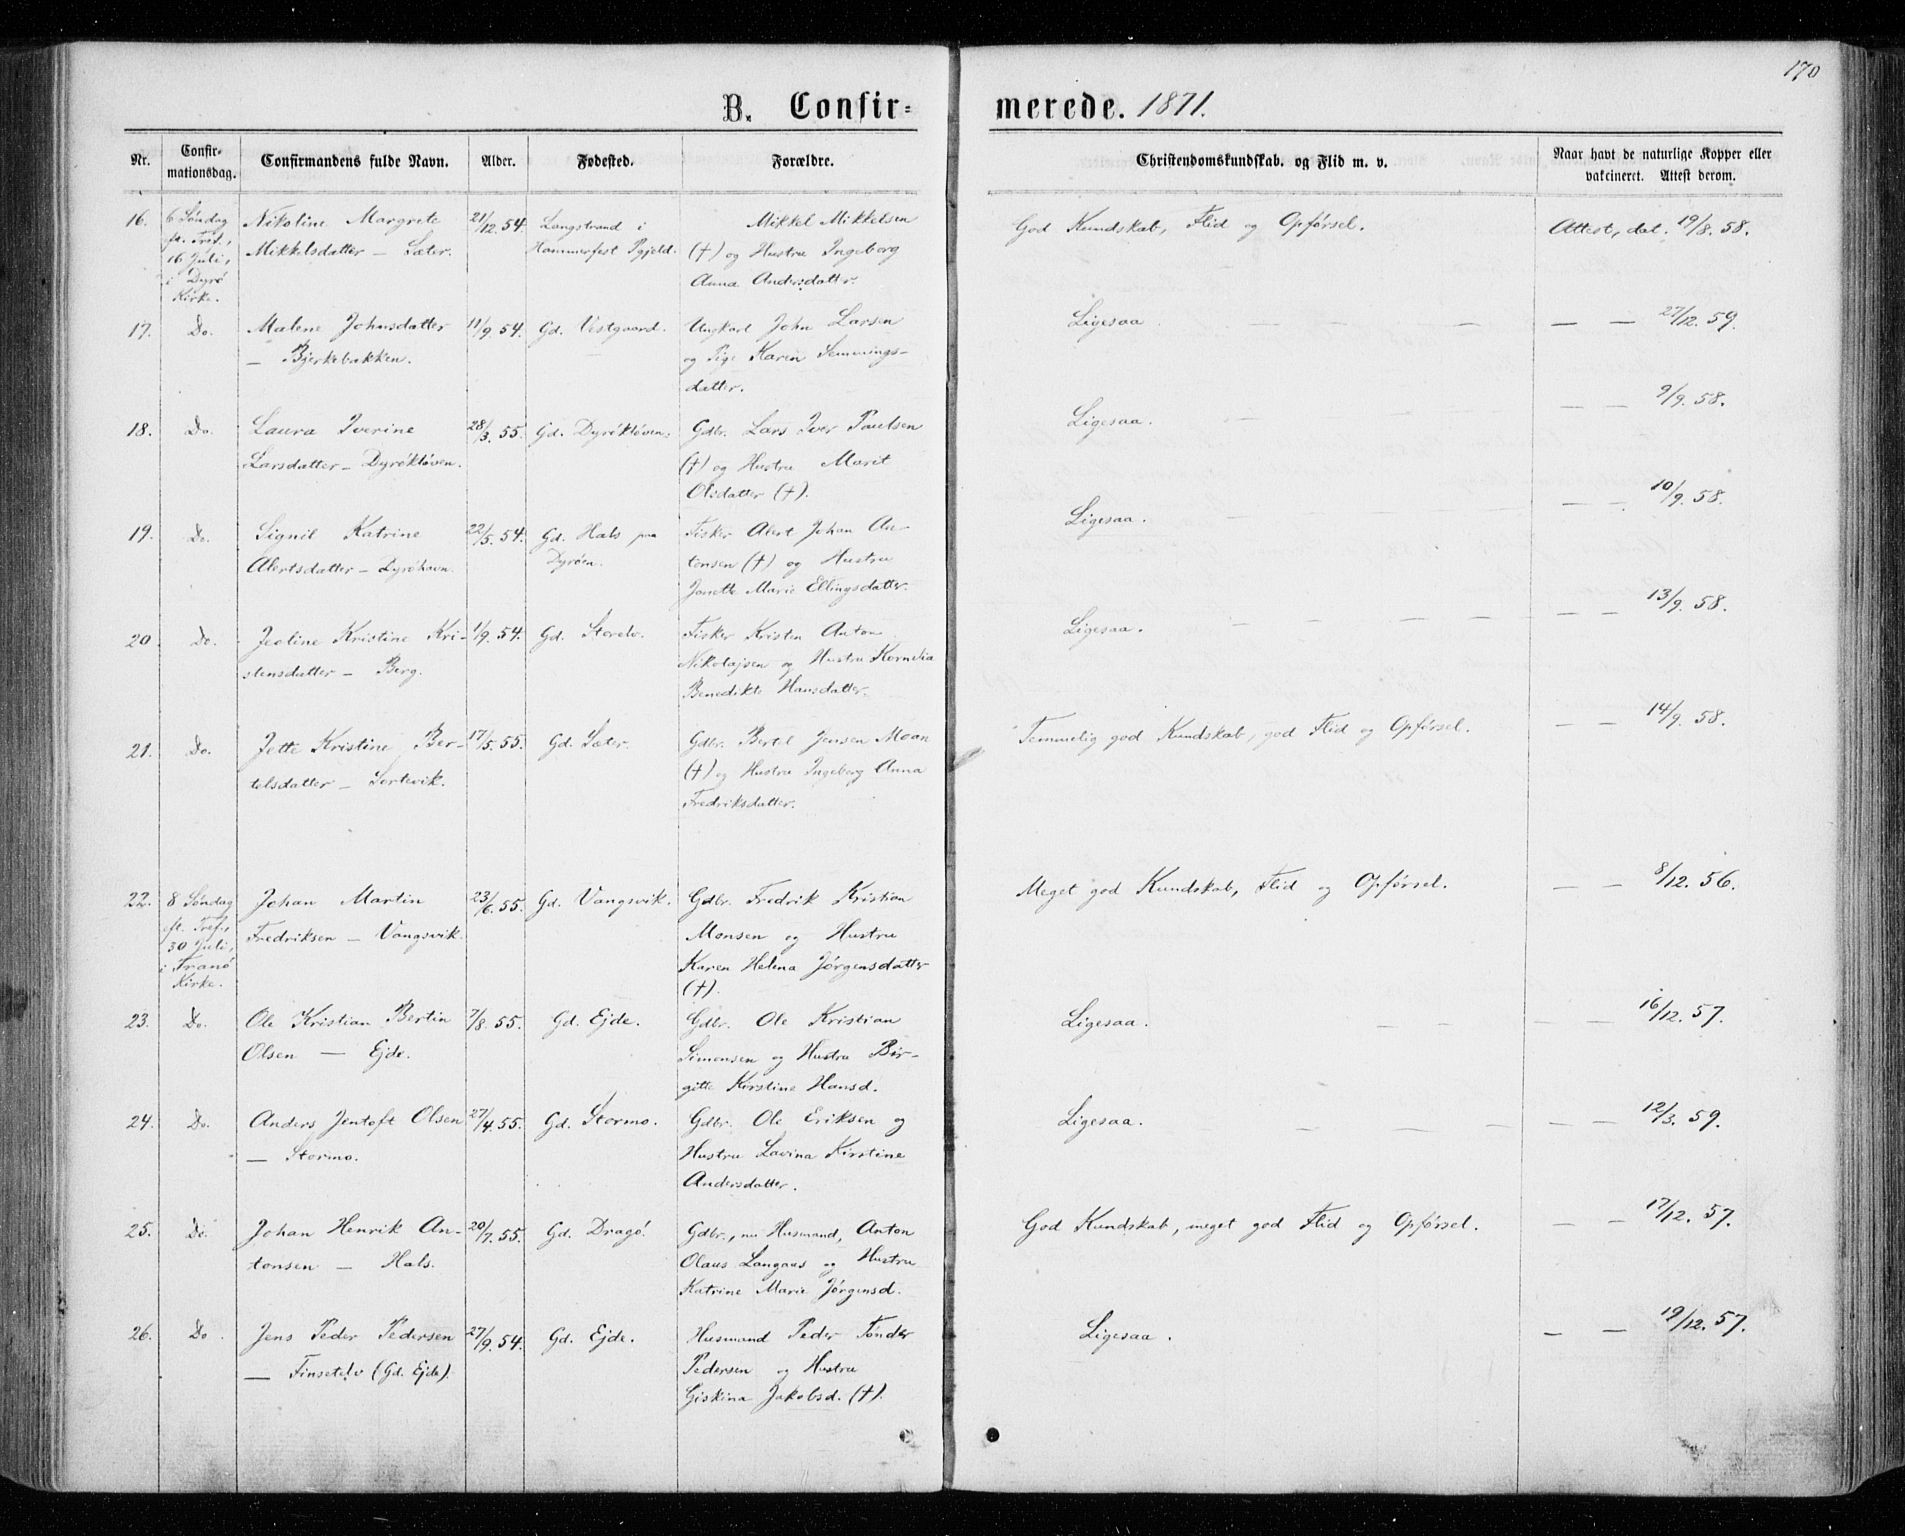 170
B. Confir=
merede. 1871.
Nr.
Confir-
mationsdag.
Confirmandens fulde Navn.
Alder.
Fødested.
Forældre.
Christendomskundskab. og Flid m. v.
Naar havt de naturlige Kopper eller
vakcineret. Attest derom.
16.
6 Søndag
ft. Tref.,
16 Juli,
i Dyrø
Kirke.
Nikoline Margrete
Mikkelsdatter — Sæter.
21/12. 54.
Langstrand i
Hammerfest Pgjeld.
Mikkel Mikkelsen
(†) og Hustru Ingeborg
Anna Andersdatter.
God Kundskab, Flid og Opførsel.
Attest, dat. 19/8. 58.
17.
Do.
Malene Johnsdatter
— Bjerkebakken.
11/9. 54.
Gd. Vestgaard.
Ungkarl John Larsen
og Pige Karen Semmings-
datter.
Ligesaa — — — — —
— — 27/12. 59.
18.
Do.
Laura Iverine
Larsdatter — Dyrökløven.
28/3. 55.
Gd. Dyrökløven.
Gdbr. Lars Iver Paulsen
(†) og Hustru Marit
Olsdatter (†).
Ligesaa. — — — —
— — 9/9. 58.
19.
Do.
Signil Katrine
Alertsdatter — Dyröhavn.
22/5. 54.
Gd. Hals paa
Dyröen.
Fisker Alert Johan An-
tonsen (†) og Hustru
Janette Marie Ellingsdatter.
Ligesaa. — — — —
— — 10/9. 58.
20.
Do.
Jeoline Kristine Kri-
stensdatter — Berg.
1/9. 54.
Gd. Storelv.
Fisker Kristen Anton
Nikolajsen og Hustru Kornelia
Benedikte Hansdatter.
Ligesaa. — — — — —
— — 13/9. 58.
21.
Do.
Jette Kristine Ber-
telsdatter — Sortevik.
17/5. 55.
Gd. Sæter.
Gdbr. Bertel Jensen Moan
(†) og Hustru Ingeborg Anna
Fredriksdatter.
Temmelig god Kundskab, god Flid og Opførsel.
— — 14/9. 58.
22.
8 Søndag
ft. Tref.,
30 Juli,
i Tranö
Kirke.
Johan Martin
Fredriksen — Vangsvik.
23/6. 55.
Gd. Vangsvik.
Gdbr. Fredrik Kristian
Monsen og Hustru
Karen Helena Jørgensdatter
(†).
Meget god Kundskab, Flid og Opførsel.
— — 8/12. 56.
23.
Do.
Ole Kristian Bertin
Olsen — Ejde.
7/8. 55.
Gd. Ejde.
Gdbr. Ole Kristian
Simonsen og Hustru Bir-
gitte Kirstine Hansd.
Ligesaa. — —
— — 16/12. 57.
24.
Do.
Anders Jentoft Olsen
— Stormo.
27/4. 55.
Gd. Stormo.
Gdbr. Ole Eriksen og
Hustru Lavina Kirstine
Andersdatter.
Ligesaa. — — —
— — 12/3. 59.
25.
Do.
Johan Henrik An-
tonsen — Hals.
20/7. 55.
Gd. Dragö.
Gdbr., nu Husmand, Anton
Olaus Langaus og Hustru
Katrine Marie Jørgensd.
God Kundskab, meget god Flid og Opførsel.
— — 17/12. 57.
26.
Do.
Jens Peder Pedersen
— Finsetelv (Gd. Ejde).
27/9. 54.
Gd. Ejde.
Husmand Peder Tønder
Pedersen og Hustru
Giskina Jakobsd. (†).
Ligesaa.
— — 19/12. 57.